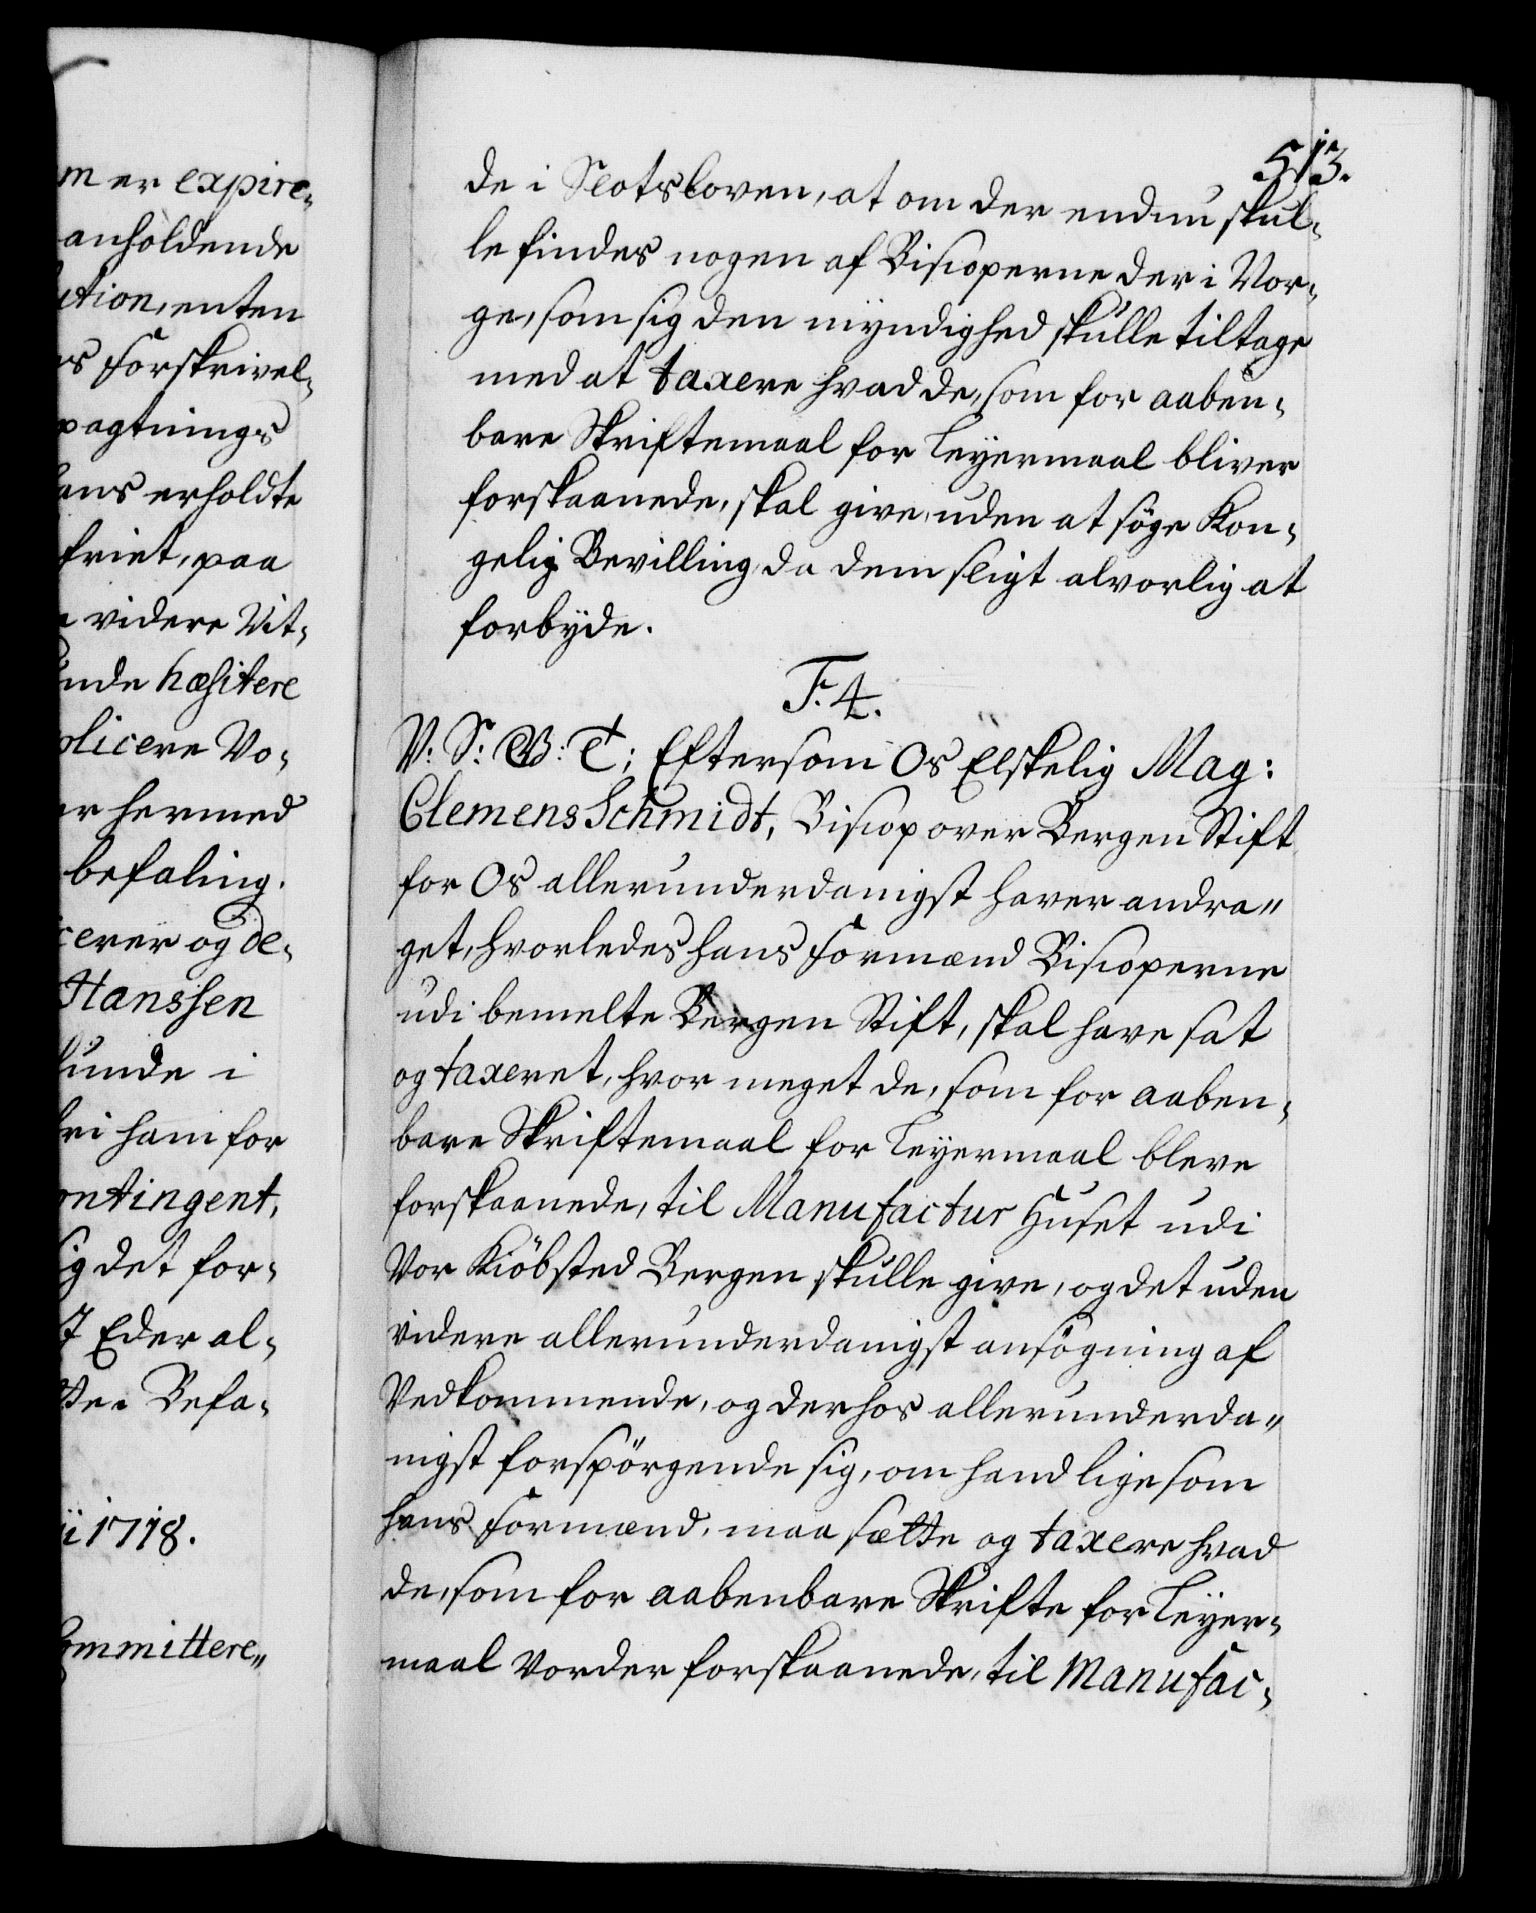 m er expire-
anholdende
ution, enten
es Forskrivel-
pagtnings
hans erholdte
friet, paa
videre Vit-
unde hæsitere
plicere Vo-
er hermed
befaling.
cerer og de-
Hanssen
lunde i
fri ham for
ontingent,
sig det for-
Eder al-
Befa-
ii 1718.
ommittere-
513.
de i Slotsloven, at om der endnu skul-
le findes nogen af Biscoperne der i Nor-
ge, som sig den myndighed skulle tiltage
med at taxere hvad de, som for aaben-
bare Skriftemaal for Leyermaal bliver
forskaanede, skal give, uden at söge Kon-
gelig Bevilling, da dem sligt alvorlig at
forbyde.
F. 4.
V: S: G: V: T; Eftersom Os Elskelig Mag:
Clemens Schmidt, Biscop over Bergen Stift
for Os allerunderdanigst haver andra-
get, hvorledes hans Formænd Biscoperne
udi bemelte Bergen Stift, skal have sat
og taxeret, hvor meget de, som for aaben-
bare Skriftemaal for Leyermaal bleve
forskaanede, til Manufactur Huset udi
Vor Kiöbsted Bergen skulle give, og det uden
videre allerunderdanigst ansögning af
Vedkommende, og derhos allerunderda-
nigst forspörgende sig, om hand ligesom
hans Formænd, maa sætte og taxere hvad
de, som for aabenbare Skrifte for Leyer-
maal vorder forskaanede, til Manufac-